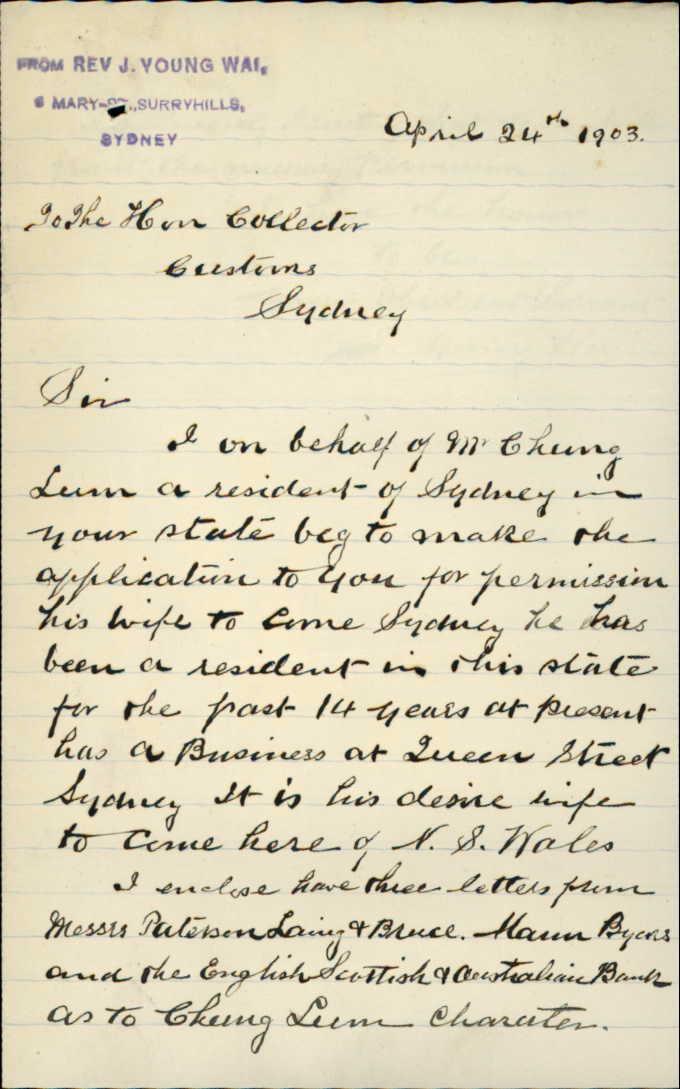 FROM REV J. YOUNG WAI,
6 MARY-ST.,SURRYHILLS,
SYDNEY
April 24th 1903.
To The Hon Collector
Customs
Sydney
Sir
I on behalf of Mr Cheung
Lum a resident of Sydney in
your state beg to make the
application to you for permission
his wife to come Sydney he has
been a resident in this state
for the past 14 years at present
has a Business at Queen Street
Sydney It is his desire wife
to come here of N. S. Wales
I enclose have three letters from
Messrs Paterson Laing & Bruce. Mann Byers
and the English Scottish & Australian Bank
as to Cheung Lum Charater.